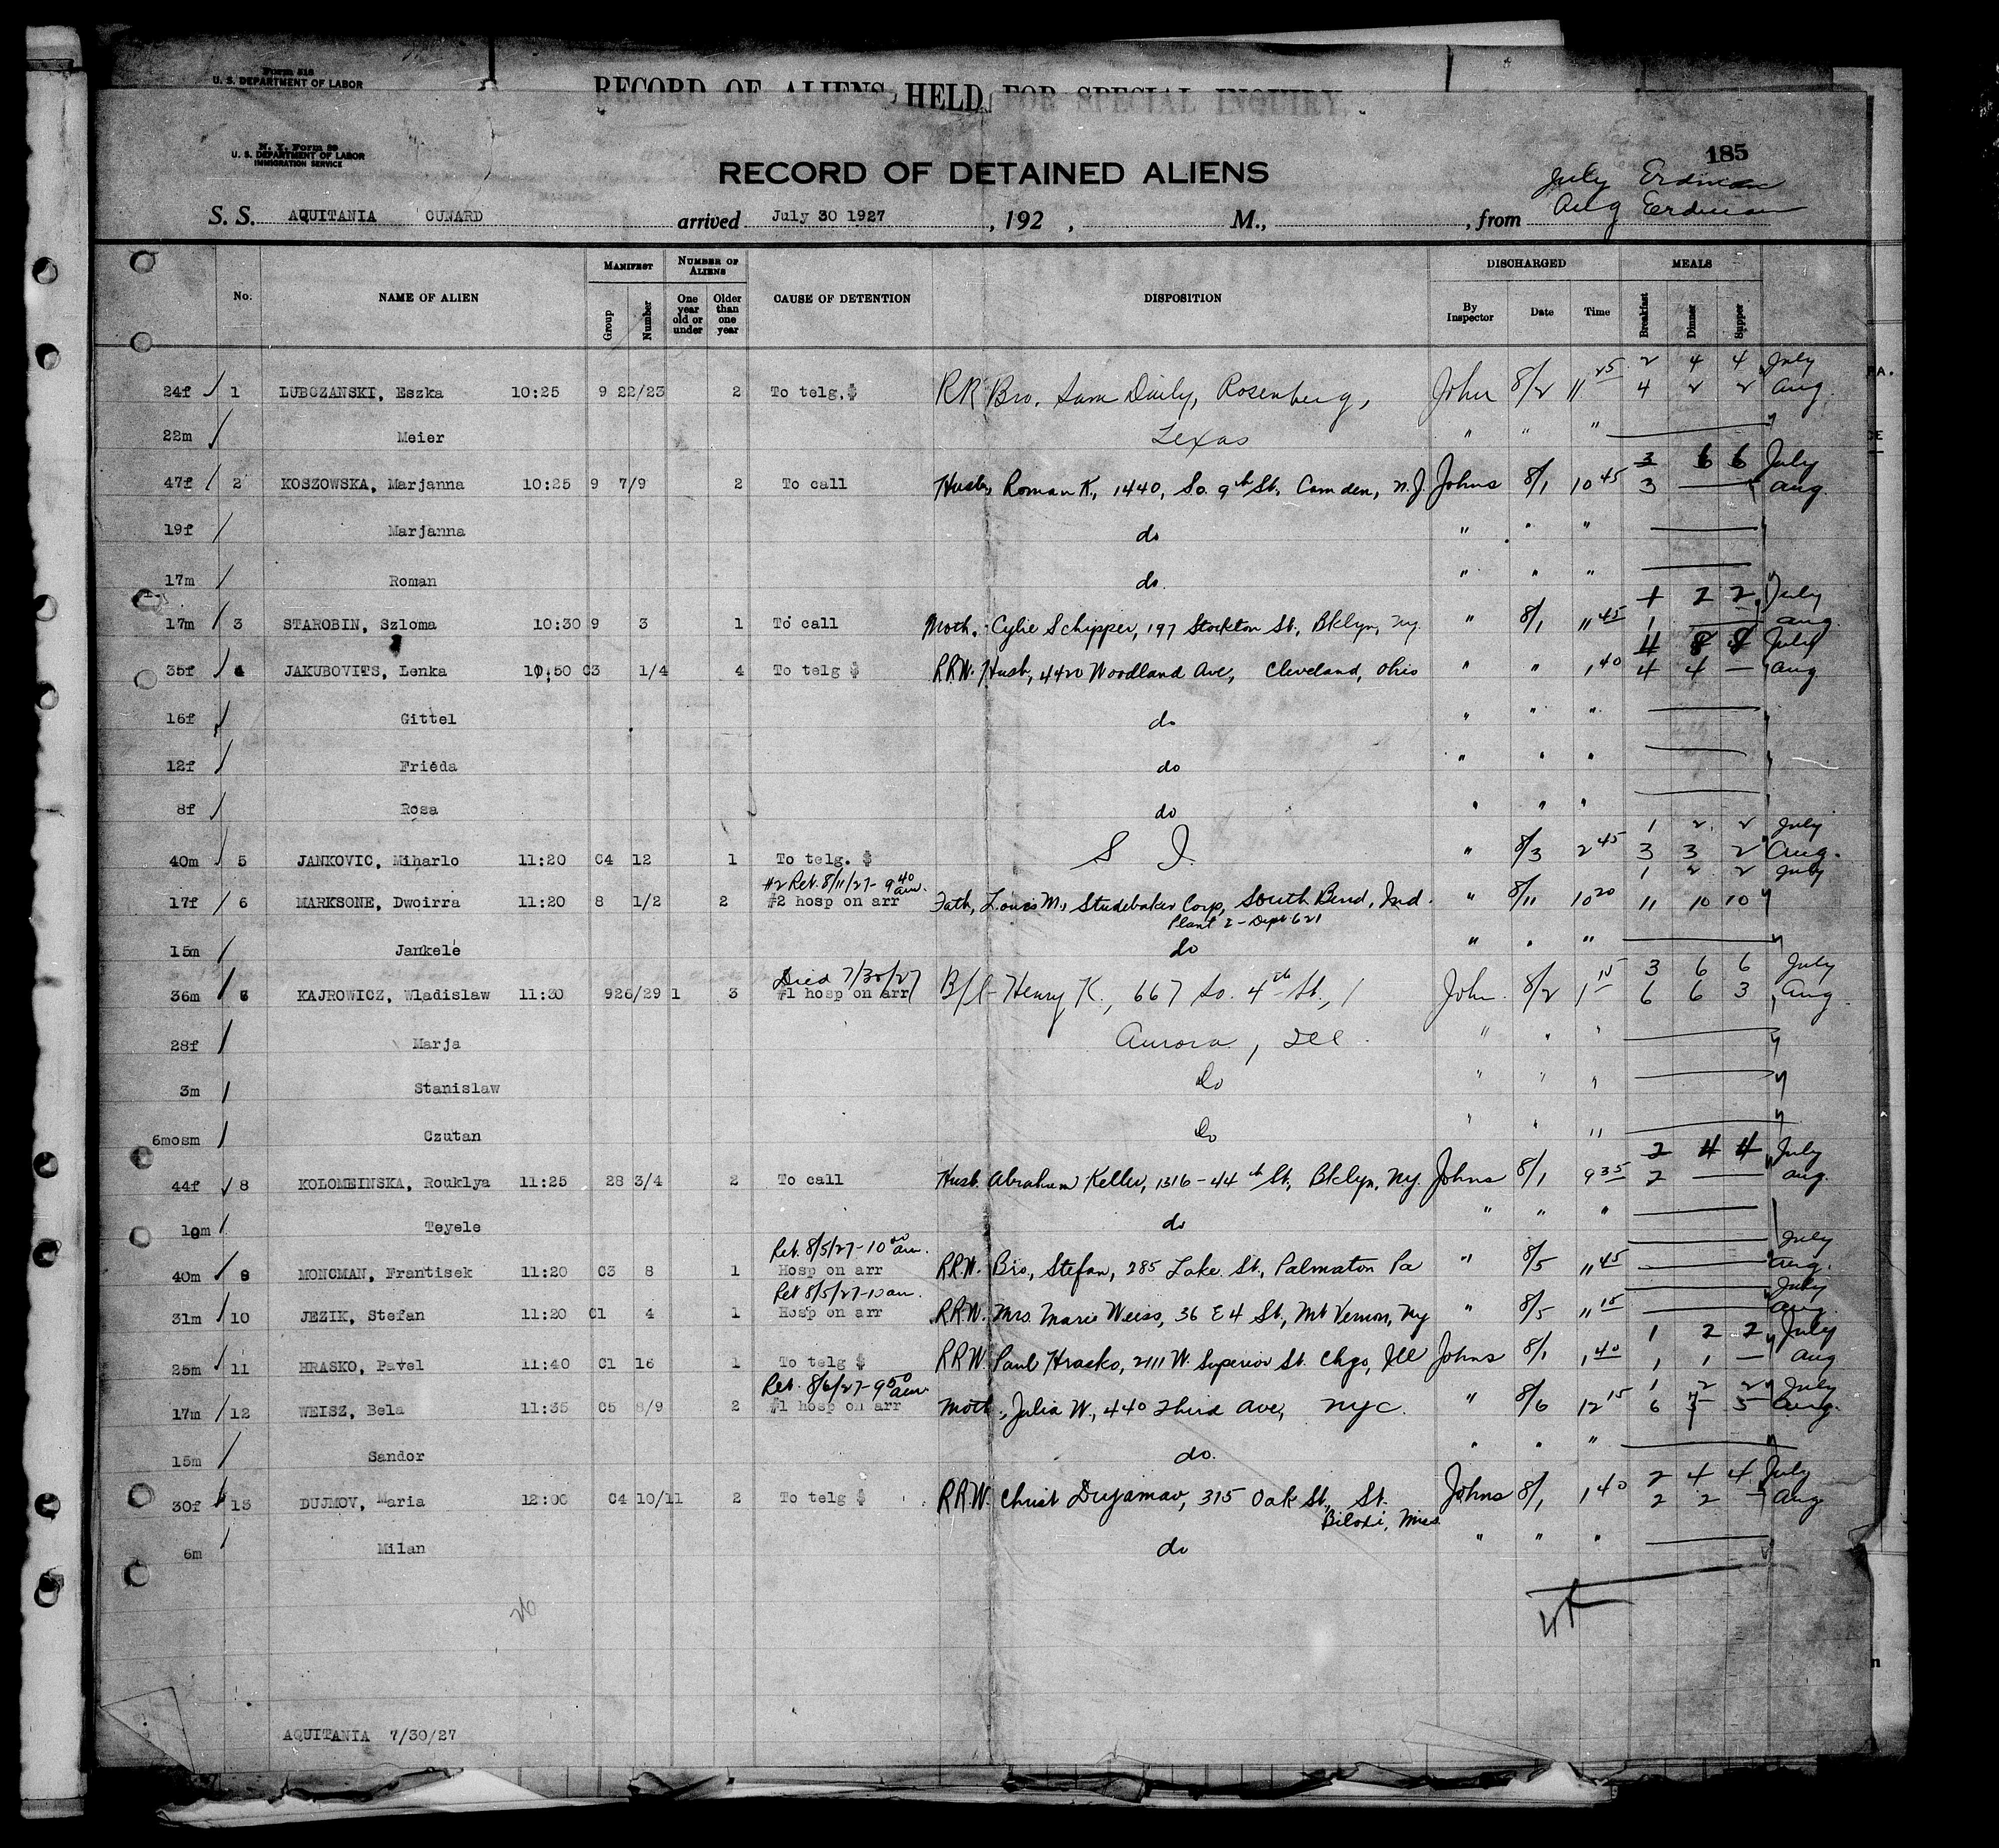 Form 516
U. S. DEPARTMENT OF LABOR
RECORD OF ALIENS HELD FOR SPECIAL INQUIRY
N. Y. Form 99
U. S. DEPARTMENT OF LABOR
IMMIGRATION SERVICE
185
RECORD OF DETAINED ALIENS
July Erdman
Aug Erdman
S. S. AQUITANIA CUNARD arrived July 30 1927, 192 , M., , from
No. NAME OF ALIEN MANIFEST NUMBER OF ALIENS CAUSE OF DETENTION DISPOSITION DISCHARGED MEALS
Group Number One year old or under Older than one year By Inspector Date Time Breakfast Dinner Supper
2 4 4 July
24f 1 LUBCZANSKI, Eszka 10:25 9 22/23 2 To telg.$ RR Bro. Sam Daily, Rosenberg, John 8/2 11 25 4 2 2 Aug.
22m Meier Texas " " "
3 6 6 July
47f 2 KOSZOWSKA, Marjanna 10:25 9 7/9 2 To call Husb, Roman K., 1440, So. 9th St., Camden, N.J. Johns 8/1 10 45 3 — Aug.
19f Marjanna do " " "
17m Roman do. " " "
1 2 2 July
17m 3 STAROBIN, Szloma 10:30 9 3 1 To call Moth. Cylie Schipper, 197 Stockton St., Bklyn, Ny. " 8/1 11 45 1 — Aug.
4 8 8 July
35f 4 JAKUBOVITS, Lenka 10:50 C3 1/4 4 To telg $ R.R.W. Husb, 4420 Woodland Ave, Cleveland, Ohio " " 1 40 4 4 — Aug
16f Gittel do " " "
12f Frieda do " " "
8f Rosa do " " "
1 2 2 July
40m 5 JANKOVIC, Miharlo 11:20 C4 12 1 To telg. $ S I. " 8/3 2 45 3 3 2 Aug.
#2 Ret. 8/11/27 - 9 40 am. 1 2 2 July
17f 6 MARKSONE, Dwoirra 11:20 8 1/2 2 #2 hosp on arr Fath, Louis M., Studebaker Corp, South Bend, Ind. " 8/11 10 20 11 10 10 "
Plant 2 - Dept 621
15m Jankele do " " "
Died 7/30/27 3 6 6 July
36m 7 KAJROWICZ, Wladislaw 11:30 9 26/29 1 3 #1 hosp on arr B/l - Henry K., 667 So. 4th St., John. 8/2 1 15 6 6 3 Aug
28f Marja Aurora, Ill. " " "
3m Stanislaw Do " " "
6mosm Czutan Do " " "
2 4 4 July
44f 8 KOLOMEINSKA, Rouklya 11:25 28 3/4 2 To call Husb. Abraham Keller, 1316 - 44th St., Bklyn, Ny. Johns 8/1 9 35 2 — Aug.
Teyele do " " "
Ret. 8/5/27 - 10 am. July
40m 9 MONCMAN, Frantisek 11:20 C3 8 1 Hosp on arr R.R.W. Bro, Stefan, 285 Lake St., Palmaton Pa " 8/5 11 45 — Aug.
Ret 8/5/27 - 10 am. July
31m 10 JEZIK, Stefan 11:20 C1 4 1 Hosp on arr R.R.W. Mrs. Marie Weiss, 36 E 4 St., Mt Vernon, Ny " 8/5 11 15 — Aug.
1 2 2 July
25m 11 HRASKO, Pavel 11:40 C1 16 1 To telg $ R.R.W. Paul Hrasko, 2111 W. Superior St. Chgo, Ill Johns 8/1 1 40 1 1 — Aug
Ret. 8/6/27 - 9 50 am. 1 2 2 July
17m 12 WEISZ, Bela 11:35 C5 8/9 2 #1 hosp on arr Moth, Julia W., 440 Third Ave, NYC. " 8/6 12 15 6 5 5 Aug.
15m Sandor do. " " "
2 4 4 July
30f 13 DUJMOV, Maria 12:00 C4 10/11 2 To telg $ R.R.W. Christ Dujamav, 315 Oak St., St. Johns 8/1 1 40 2 2 — Aug
Biloxi, Miss
6m Milan do " " "
AQUITANIA 7/30/27